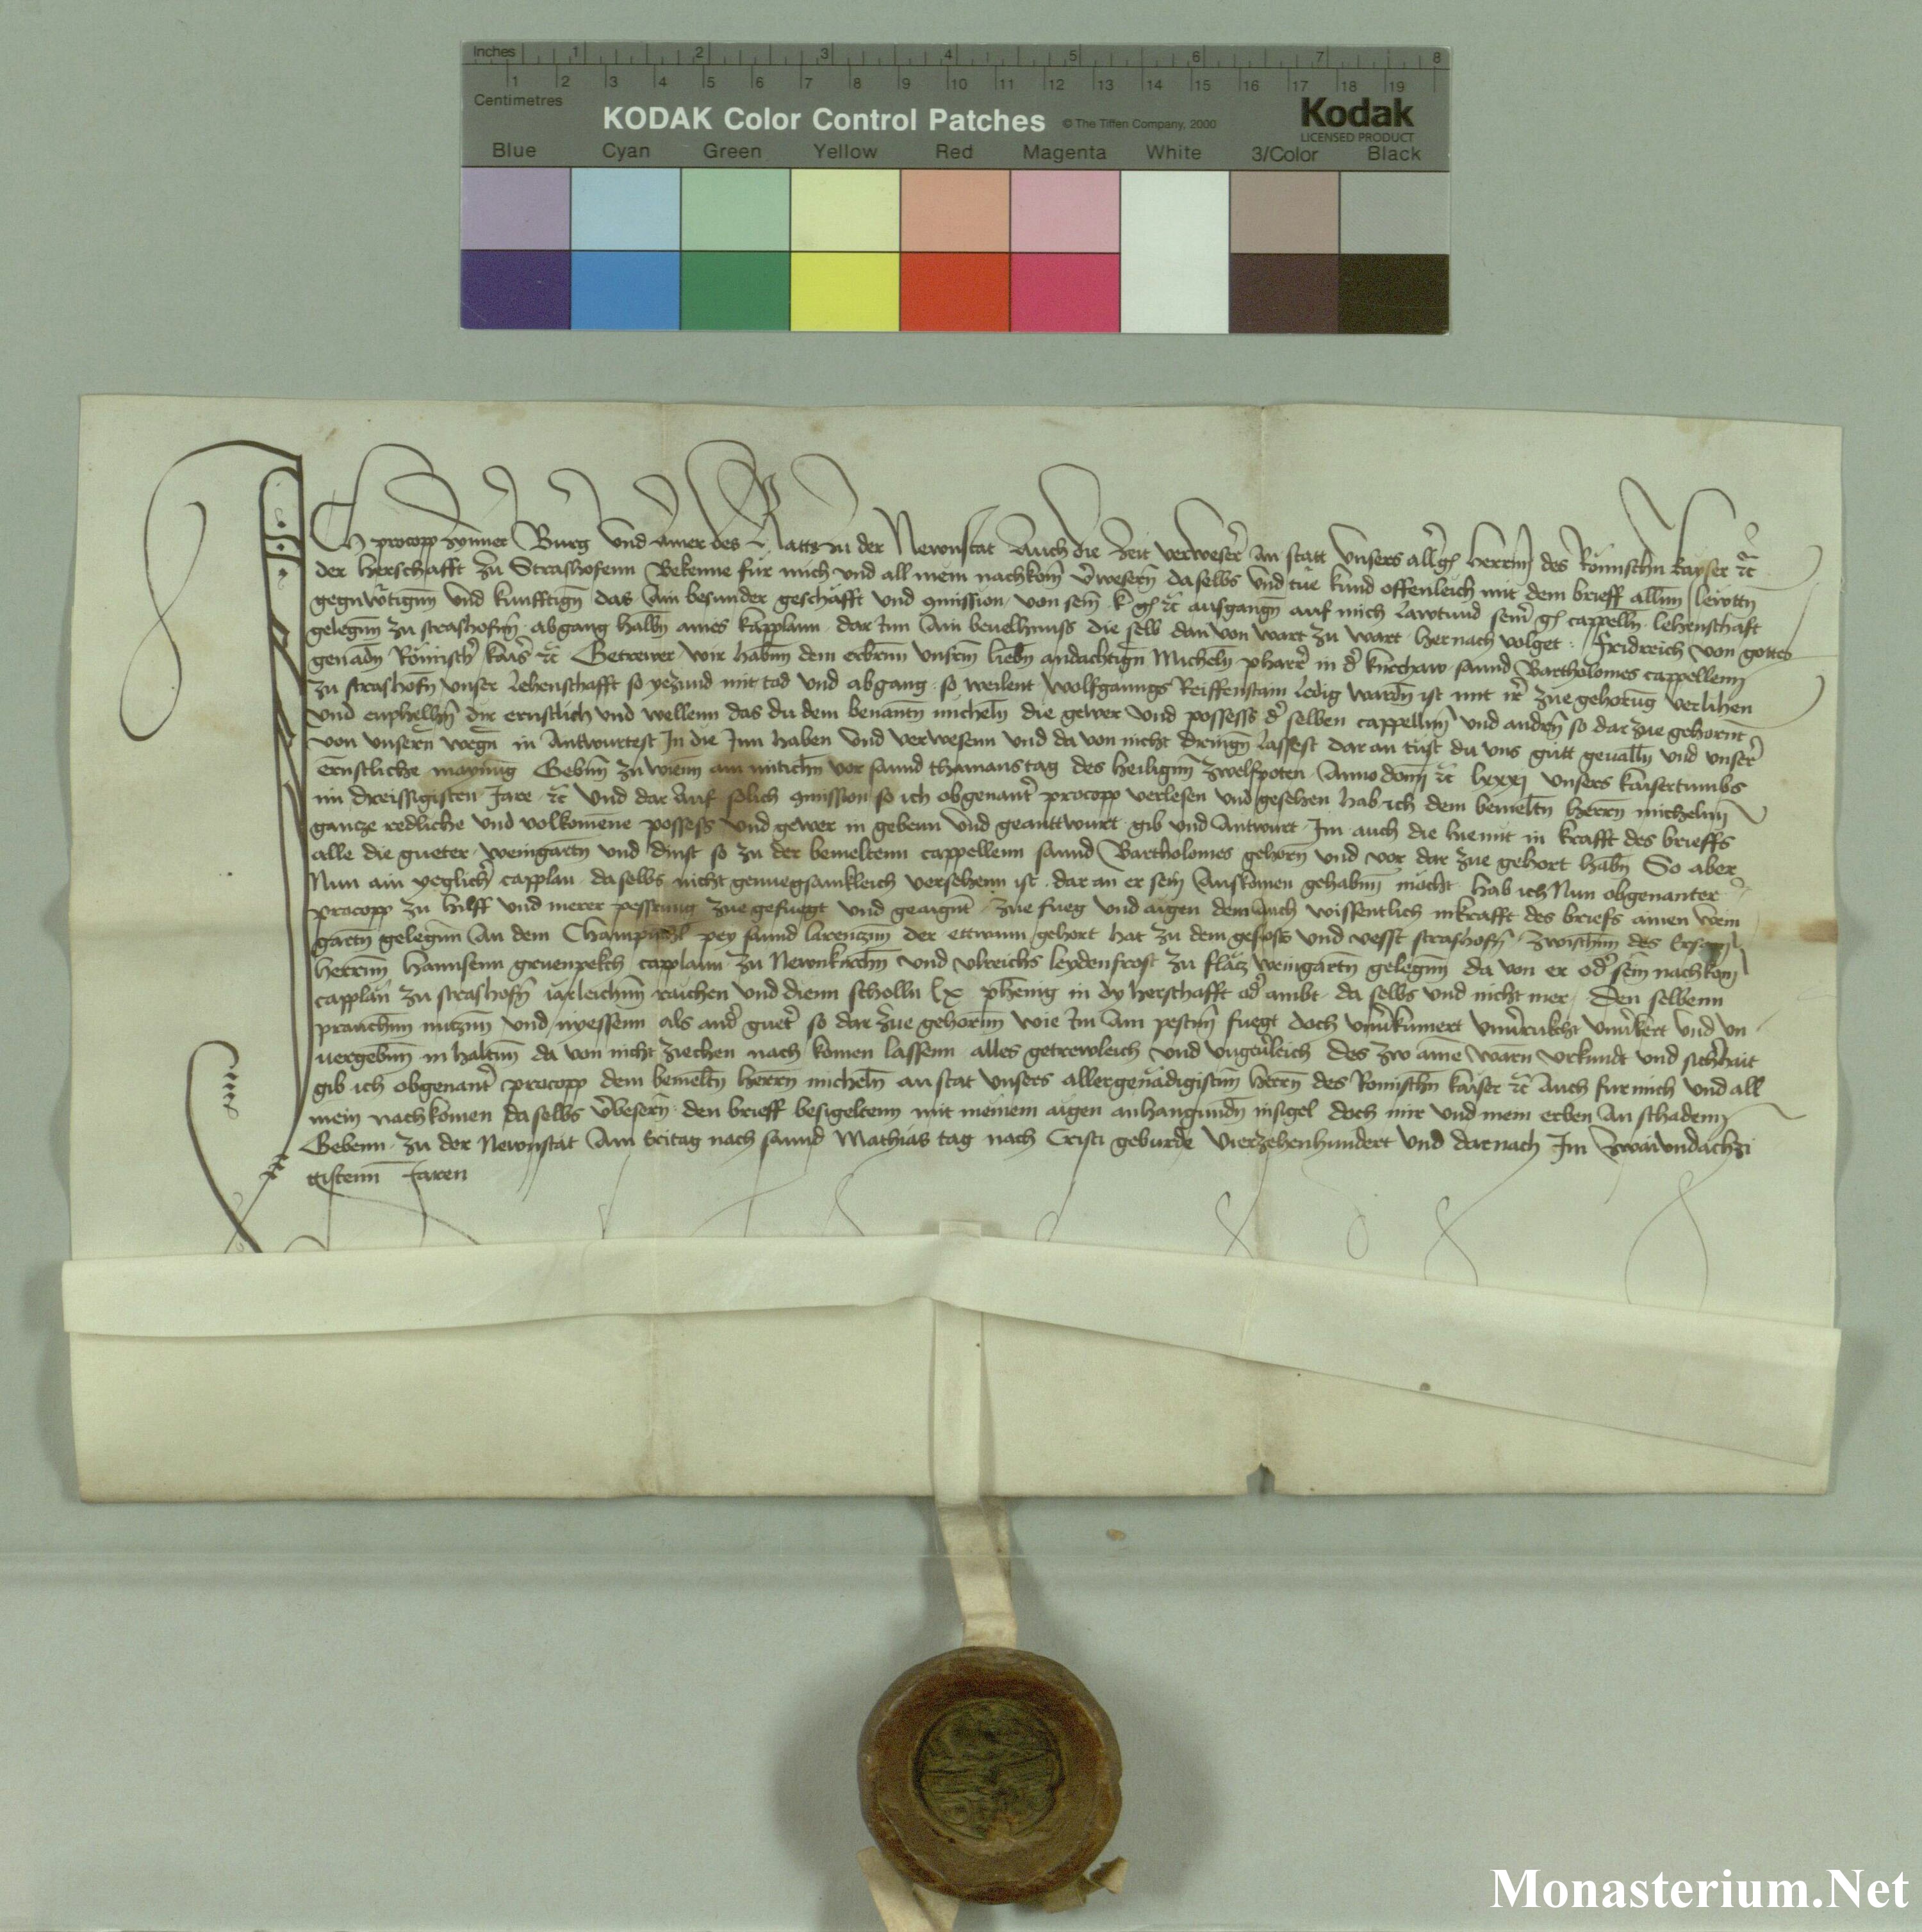 Inches 1 2 3 4 5 6 7 8
1 2 3 4 5 6 7 8 9 10 11 12 13 14 15 16 17 18 19
Centimetres
KODAK Color Control Patches © The Tiffen Company, 2000 Kodak
LICENSED PRODUCT
Blue Cyan Green Yellow Red Magenta White 3/Color Black
ICh procopp Burg und des Ratts zu der Newnstat Auch die Zeit verweser An statt Unsers herrnn des Römischn kayser ꝛc
der herschafft zu Strashofenn Bekenne für mich und all mein nachkom̄ daselbs und tue kund offenleich mit dem brieff allnn lewttn
und kunfftign das Ain besunder geschäfft und von sein ausgangn auf mich seinr cappelln lehenschaft
gelegnn zu strashofnn abgang halbn aines kapplann dar Inn Ain beuelhnuss die selb dan von wart zu wart her nach volget Fridreich von gottes
genadn Römischr kaisr ꝛc Getrewer wir habnn dem erbernn unsernn liebn andachtign Micheln pharrer in dr kirchaw sannd Bartholomes cappellenn
zu strashofn unser Lehenschafft so yezund mit tod und abgang so weilent wolfganngs Reiffenstain Ledig wardn ist mit irer zue gehorūg verlihen
und enphelhn dir ernstlich und wellenn das du dem benantn micheln die gewer und possess dr selben cappellnn und andern so dar zue gehornt
von unsern wegn in Antwurtest In die Inn haben und verwesenn und da von nicht dringn lassest dar an tust du uns gut geualln und unser
ernstliche maynūg Gebnn zu wienn am mitichn vor sannd thamans tag des heilignn zwelfpoten Anno domj ꝛc lxxxj unsers kaisertumbs
im dreissigisten Jare ꝛc Und dar Auf solich so ich obgenantr procopp verlesen und gesehen hab ich dem bemeltn herrn michelnn
gancze redliche und volkomene possess und gewer in gebenn und geanttwurt gib und Antwurt Im auch die hiemit in krafft des brieffs
alle die gueter weingartn und dinst so zu der bemeltenn cappellenn sannd Bartholomes gehorn und vor dar zue gehort habn So aber
Nun ain yeglichr capplan daselbs nicht genuegsamkleich versehenn ist dar an er sein Auskomen gehabnn möcht hab ich Nun obgenanter
procopp zu hilff und merer pessrung zue gefuegt und geaignt zue fueg und aigen dem Auch wissentlich inkrafft des briefs ainen wein
gartn gelegnn An dem pey sannd larenczen der ettwann gehort hat zu dem gesloss und vesst strashofn zwischnn des
herrnn hannsenn gruenpekch capplann zu Newnkirchn und ulreichs leydenfrost zu flacz weingartn gelegnn da von er odr sein nachkom
capplan zu strashofn iarleichnn raichen und dienn solln lx phenig in dy herschafft odr ambt da selbs und nicht mer Den selbenn
prauchnn nuczn und nyessenn als andr guetr so dar zue gehornn wie Im Am pestnn fuegt doch und un
uergebnn in haltnn da von nicht ziechen nach komen lassenn alles getrewleich und ungeuerleich des zw aine warn urkundt und sicherhait
gib ich obgenantr procopp dem bemeltn herrn micheln an stat unsers allergenadigistnn herrn des Romischn kaiser ꝛc Auch fur mich und all
mein nachkomen daselbs den brieff besigeltenn mit meinem aigen anhangundn insigel doch mir und mein erben An schadenn
Gebenn zu der Newnstat Am freitag nach sannd Mathias tag nach Cristi geburde vierzehenhundert und darnach Im Zwaiundachzi
gistenn Jaren
Monasterium.Net